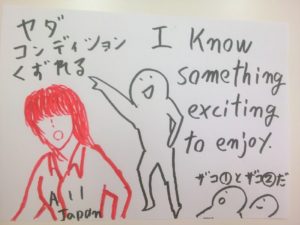 ヤダ
コンディション
くずれる
I Know
something
exciting
to enjoy.
ザコ①とザコ②だ
All
Japan